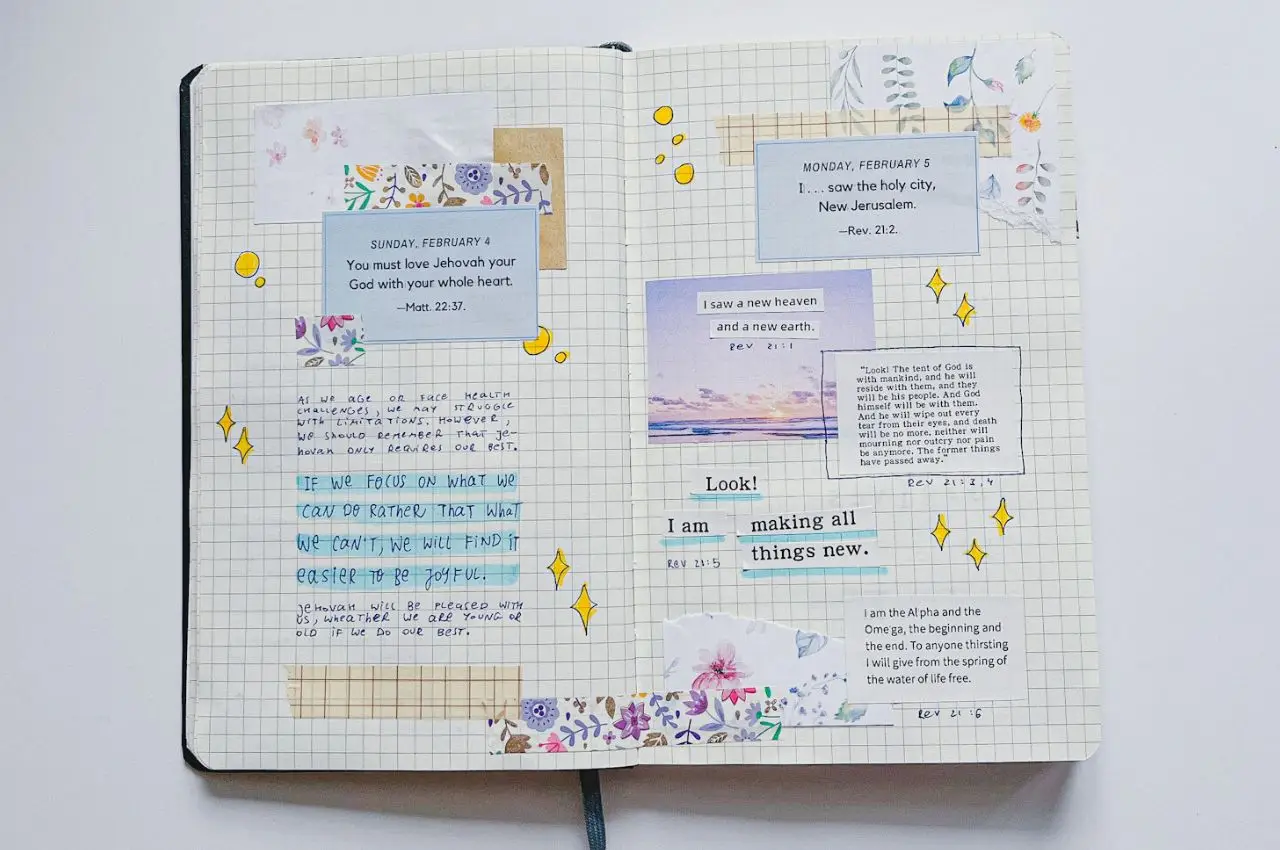 SUNDAY, FEBRUARY 4
You must love Jehovah your
God with your whole heart.
—Matt. 22:37.
AS WE AGE OR FACE HEALTH
CHALLENGES, WE MAY STRUGGLE
WITH LIMITATIONS. HOWEVER,
WE SHOULD REMEMBER THAT JE-
HOVAH ONLY REQUIRES OUR BEST.
IF WE FOCUS ON WHAT WE
CAN DO RATHER THAT WHAT
WE CAN'T, WE WILL FIND IT
EASIER TO BE JOYFUL.
JEHOVAH WILL BE PLEASED WITH
US, WHEATHER WE ARE YOUNG OR
OLD IF WE DO OUR BEST.
MONDAY, FEBRUARY 5
I . . . saw the holy city,
New Jerusalem.
—Rev. 21:2.
I saw a new heaven
and a new earth.
Rev 21:1
"Look! The tent of God is
with mankind, and he will
reside with them, and they
will be his people. And God
himself will be with them.
And he will wipe out every
tear from their eyes, and death
will be no more, neither will
mourning nor outcry nor pain
be anymore. The former things
have passed away."
Rev 21:3,4
Look!
I am making all
things new.
Rev 21:5
I am the Al pha and the
Ome ga, the beginning and
the end. To anyone thirsting
I will give from the spring of
the water of life free.
Rev 21:6